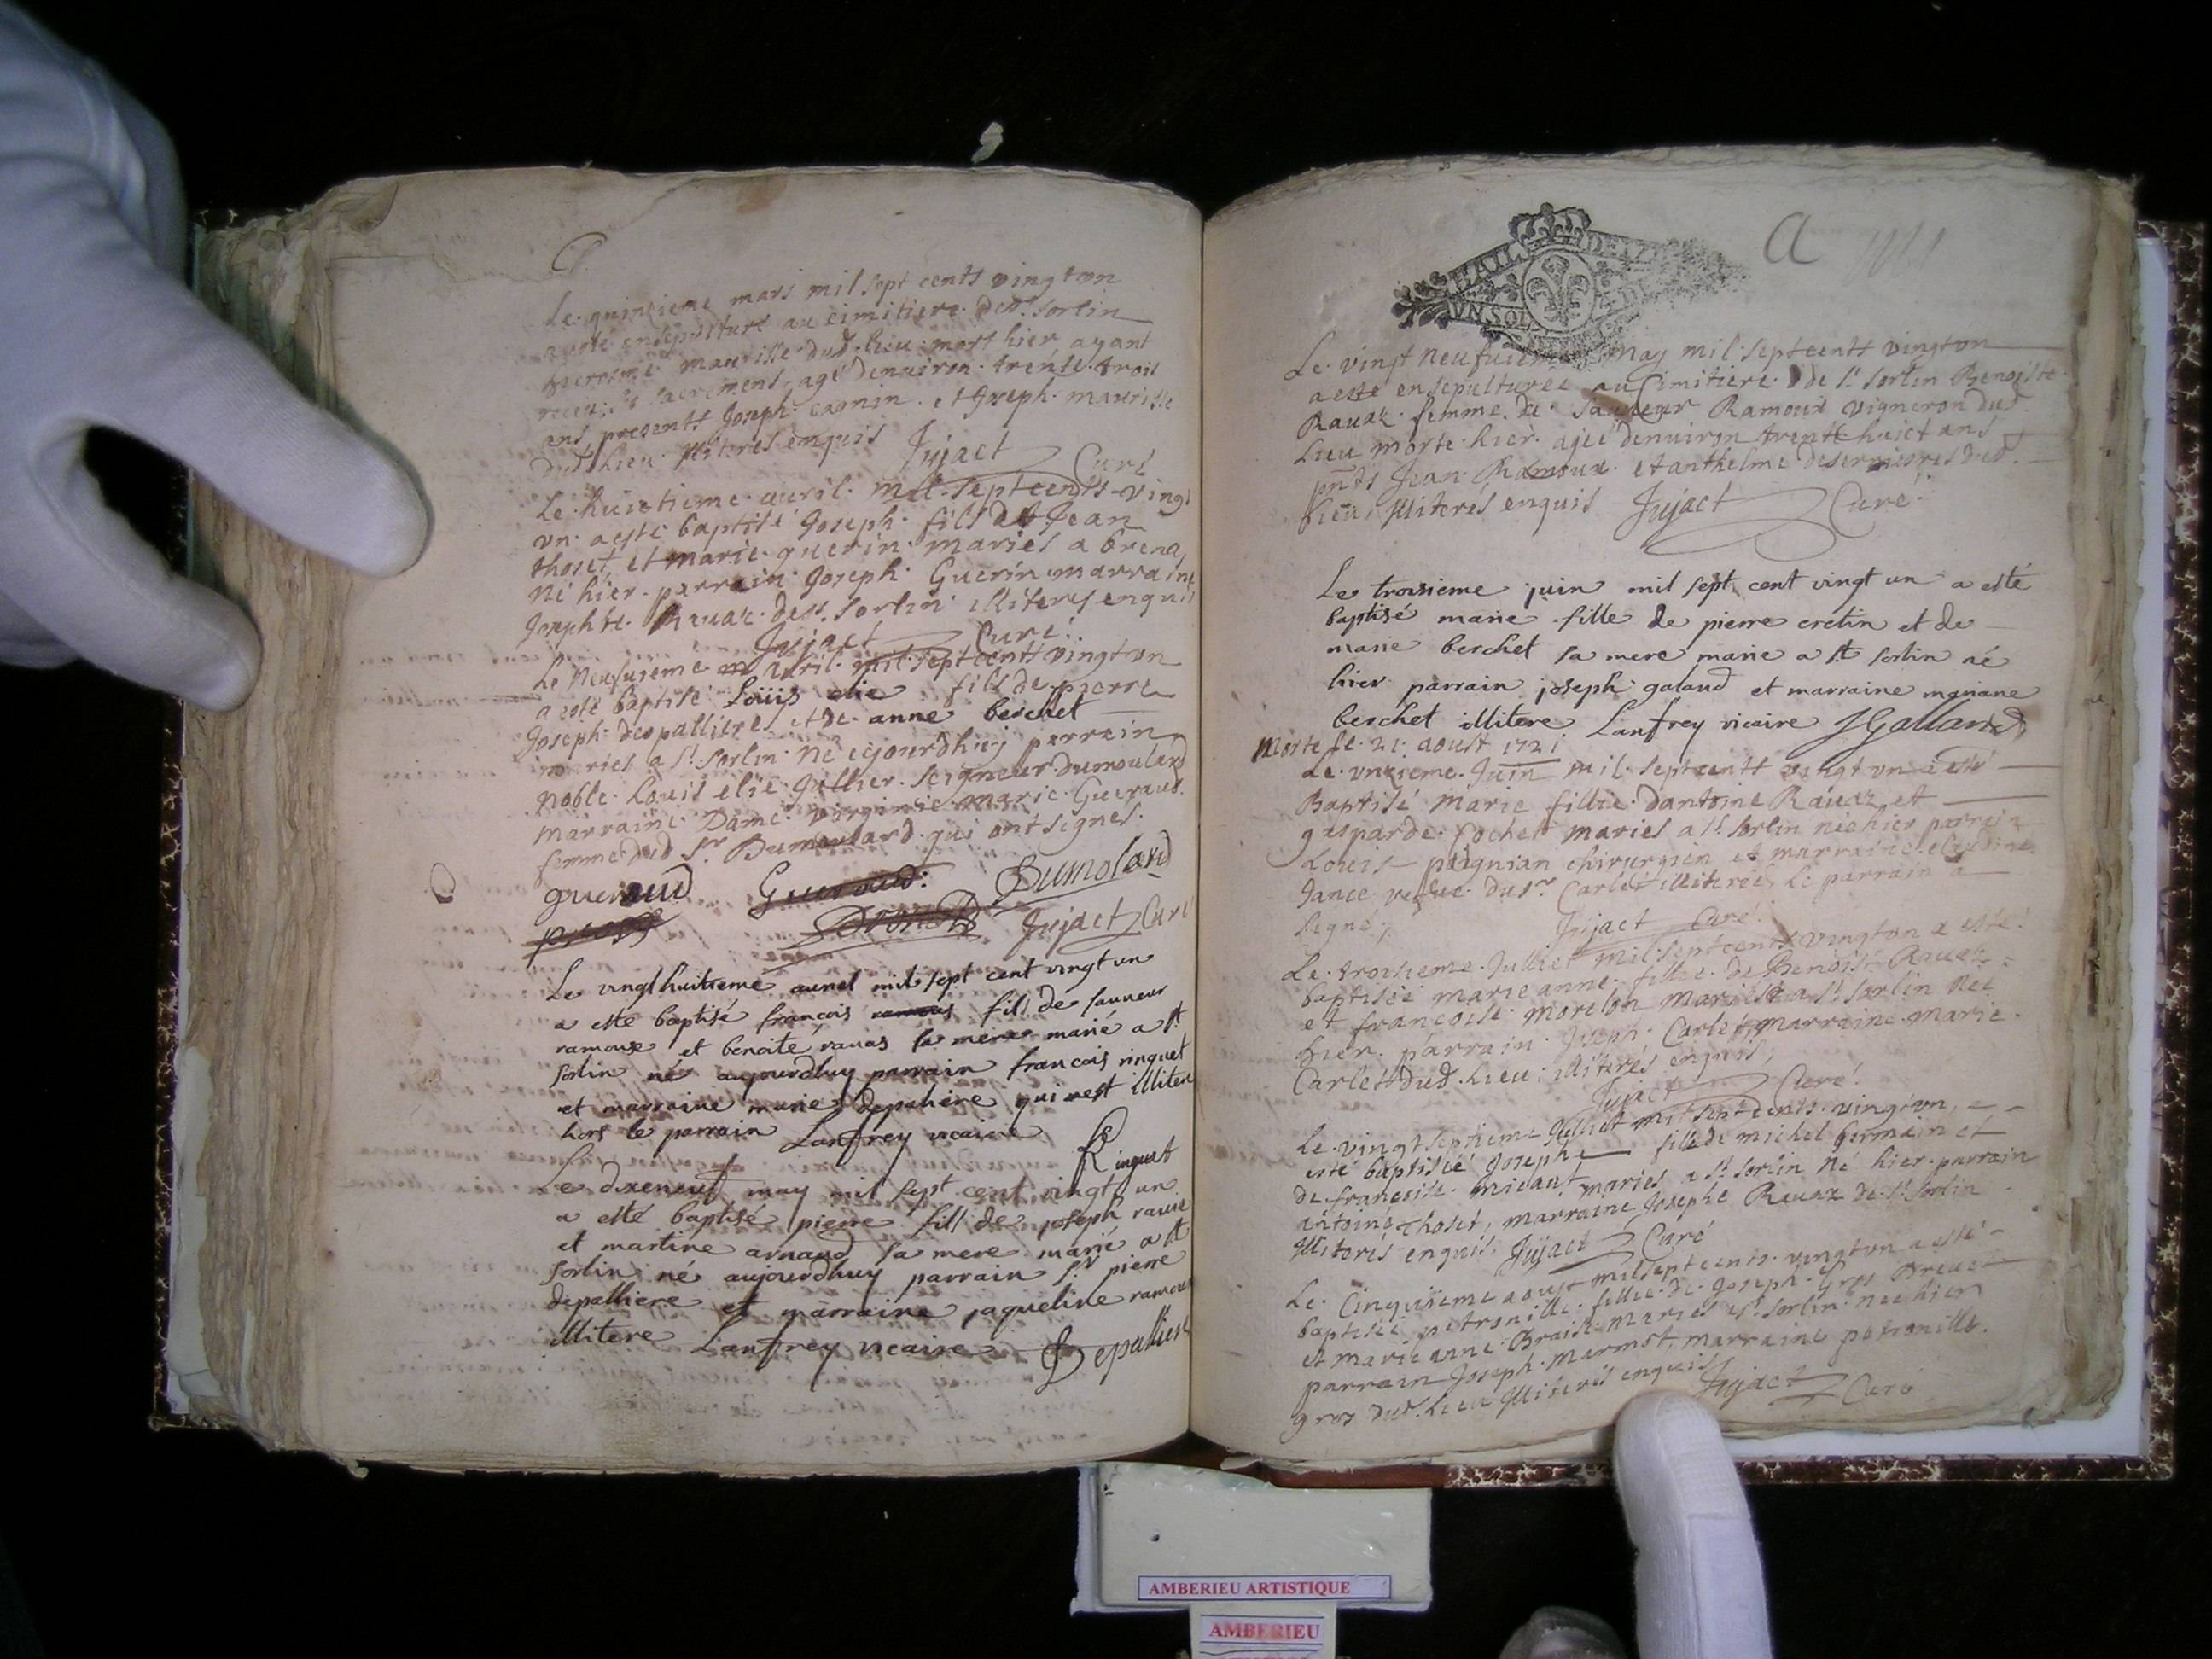 Le quinsieme mars mil sept cents vingt vn
a esté ensepulturé au cimitiere de st. sorlin
hierosme maurisse dud. lieu mort hier ayant
receu les sacremens, agé denuiron trente trois
ans presents Joseph cagnin et Joseph maurisse
dud. lieu illiterés enquis Jujact Curé
Le huictieme auril mil septcents vingt
vn a esté baptisé Joseph fils de Jean
thoset et marie guerin mariés a brena
né hier parrain Joseph Guerin marraine
Josephte Rauaz de st. sorlin illiterés enquis
Jujact Curé
Le neufuieme auril mil septcents vingt vn
a esté baptisé Loüis elie fils de pierre
Joseph despallieres et de anne berchet
mariés a st. sorlin né cejourdhuy parrain
noble Loüis elie Jullier seigneur dumoulard
marraine Dame virginie marie Gueraud
femme dud sr. Dumoulard qui ont signés.
gueraud Gueraud: Dumolard
Jujact Curé
Le vingt huitieme auril mil sept cent vingt un
a esté baptisé francois fils de sauueur
ramoux et benoite rauas sa mere marié a st
sorlin né aujourdhuy parrain francois ringuet
et marraine marie depaliere qui est illitere
hors le parrain Lanfrey vicaire
Ringuet
Le dixeneuf may mil sept cent vingt un
a esté baptisé pierre fils de joseph rauie
et martine arnaud sa mere marié a st
sorlin né aujourdhuy parrain sr pierre
depalliere et marraine jaqueline ramoux
illitere Lanfrey vicaire Depalliere
A
VN SOL
Le vingt neufuieme may mil septcents vingt vn
a esté ensepulturée au Cimitiere de st. sorlin Benoiste
Rauaz femme de sauueur Ramoux vigneron dud
Lieu morte hier agée denuiron trente huict ans
pnts Jean Ramoux et anthelme deserrieres dud.
Lieu, illiterés enquis Jujact Curé
Le troisieme juin mil sept cent vingt un a esté
baptisé marie fille de pierre cretin et de
marie berchet sa mere marie a st sorlin né
hier parrain joseph galand et marraine mariane
berchet illitere Lanfrey vicaire JGalland
morte le 21. aoust 1721
Le vnzieme Juin mil septcents vingt vn a esté
Baptisé Marie fillie dantoine Rauaz et
gasparde Cochet mariés a st. sorlin née hier parrain
Louis pugnian chirurgien et marraine claudine
Jance veufue du sr. Carlet illiterée, Le parrain a
signé Jujact Curé
Le troisieme Julliet mil septcents vingt vn a esté
baptisée marie anne fillie de Benoist Rauaz
et francoise morelon mariés a st. sorlin née
hier parrain Joseph Carlet, marraine marie
Carlet dud. Lieu illiterés enquis,
Jujact Curé
Le vingt septieme Julliet mil septcents vingt vn,
esté baptisée Josephe fille de michel germain et
de francoise micaut mariés a st. sorlin né hier parrain
antoine thoset, marraine Josephe Rauaz de st. sorlin
illiterés enquis, Jujact Curé
Le Cinquieme aoust mil septcents vingt vn a esté
baptisée petronille fillie de Joseph Gros Breuet
et marie anne Braise mariés a st. sorlin née hier
parrain Joseph marmot, marraine petronille
gros dud. Lieu illiterés enquis Jujact Curé
AMBERIEU ARTISTIQUE
AMBERIEU